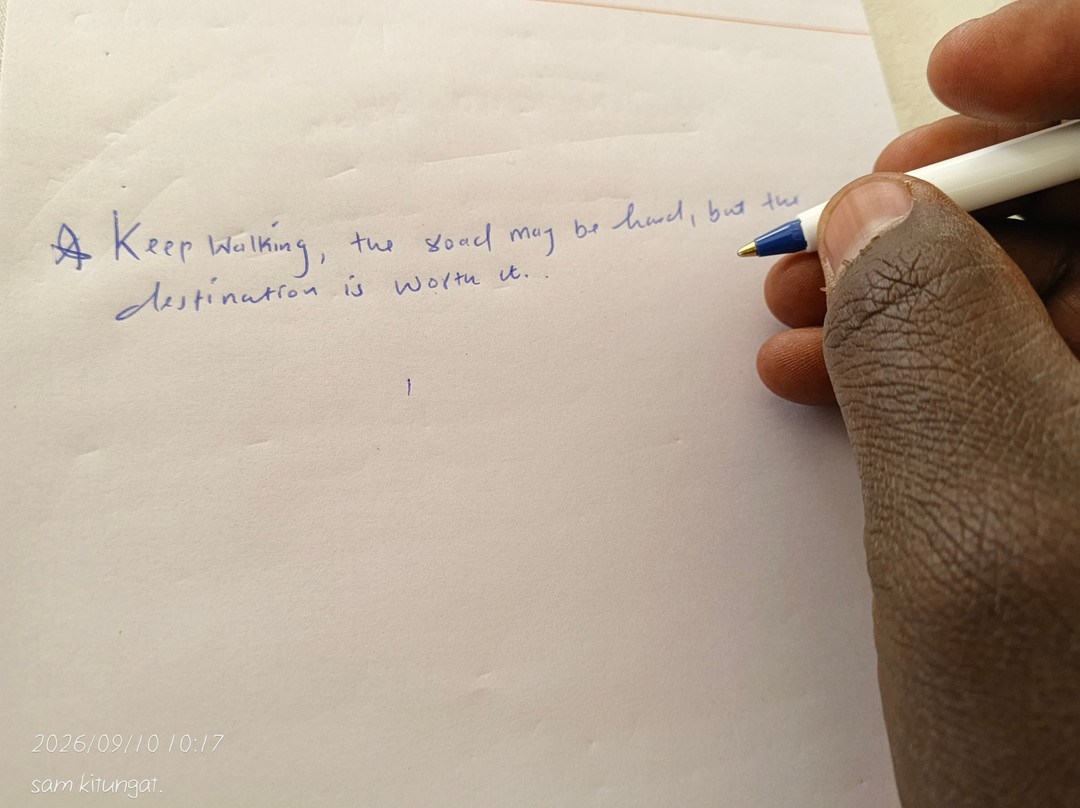 Keep Walking, the road may be hard, but the
destination is worth it..
2026/09/10 10:17
sam kitungat.